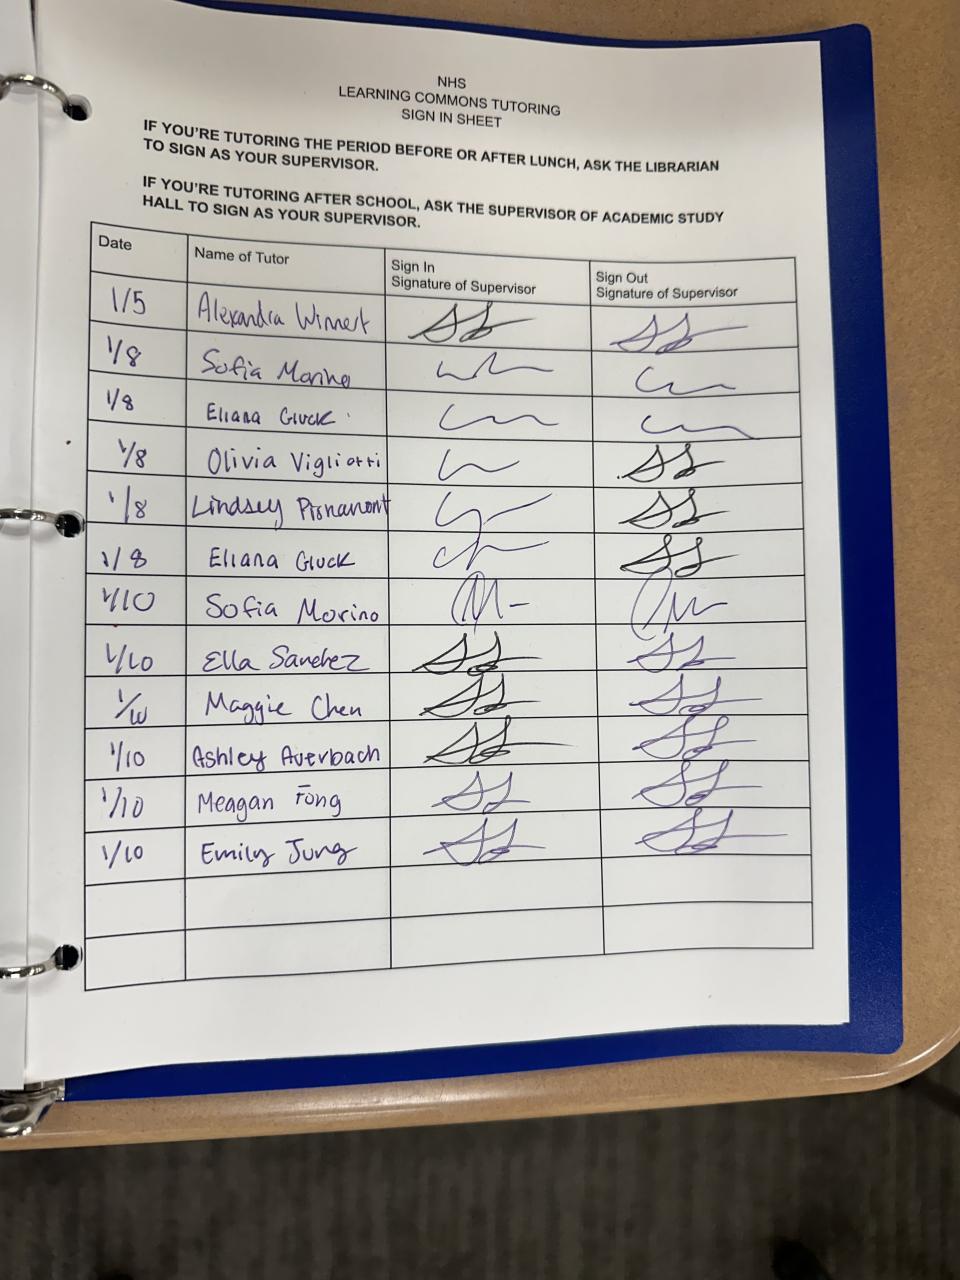 NHS
LEARNING COMMONS TUTORING
SIGN IN SHEET
IF YOU'RE TUTORING THE PERIOD BEFORE OR AFTER LUNCH, ASK THE LIBRARIAN
TO SIGN AS YOUR SUPERVISOR.
IF YOU'RE TUTORING AFTER SCHOOL, ASK THE SUPERVISOR OF ACADEMIC STUDY
HALL TO SIGN AS YOUR SUPERVISOR.
Date Name of Tutor Sign In Sign Out
Signature of Supervisor Signature of Supervisor
1/5 Alexandra
1/8 Sofia Morino
1/8 Eliana Gluck
1/8 Olivia Vigliotti
1/8 Lindsey
1/8 Eliana Gluck
1/10 Sofia Morino
1/10 Ella Sanchez
1/10 Maggie Chen
1/10 Ashley Averbach
1/10 Meagan Fong
1/10 Emily Jung